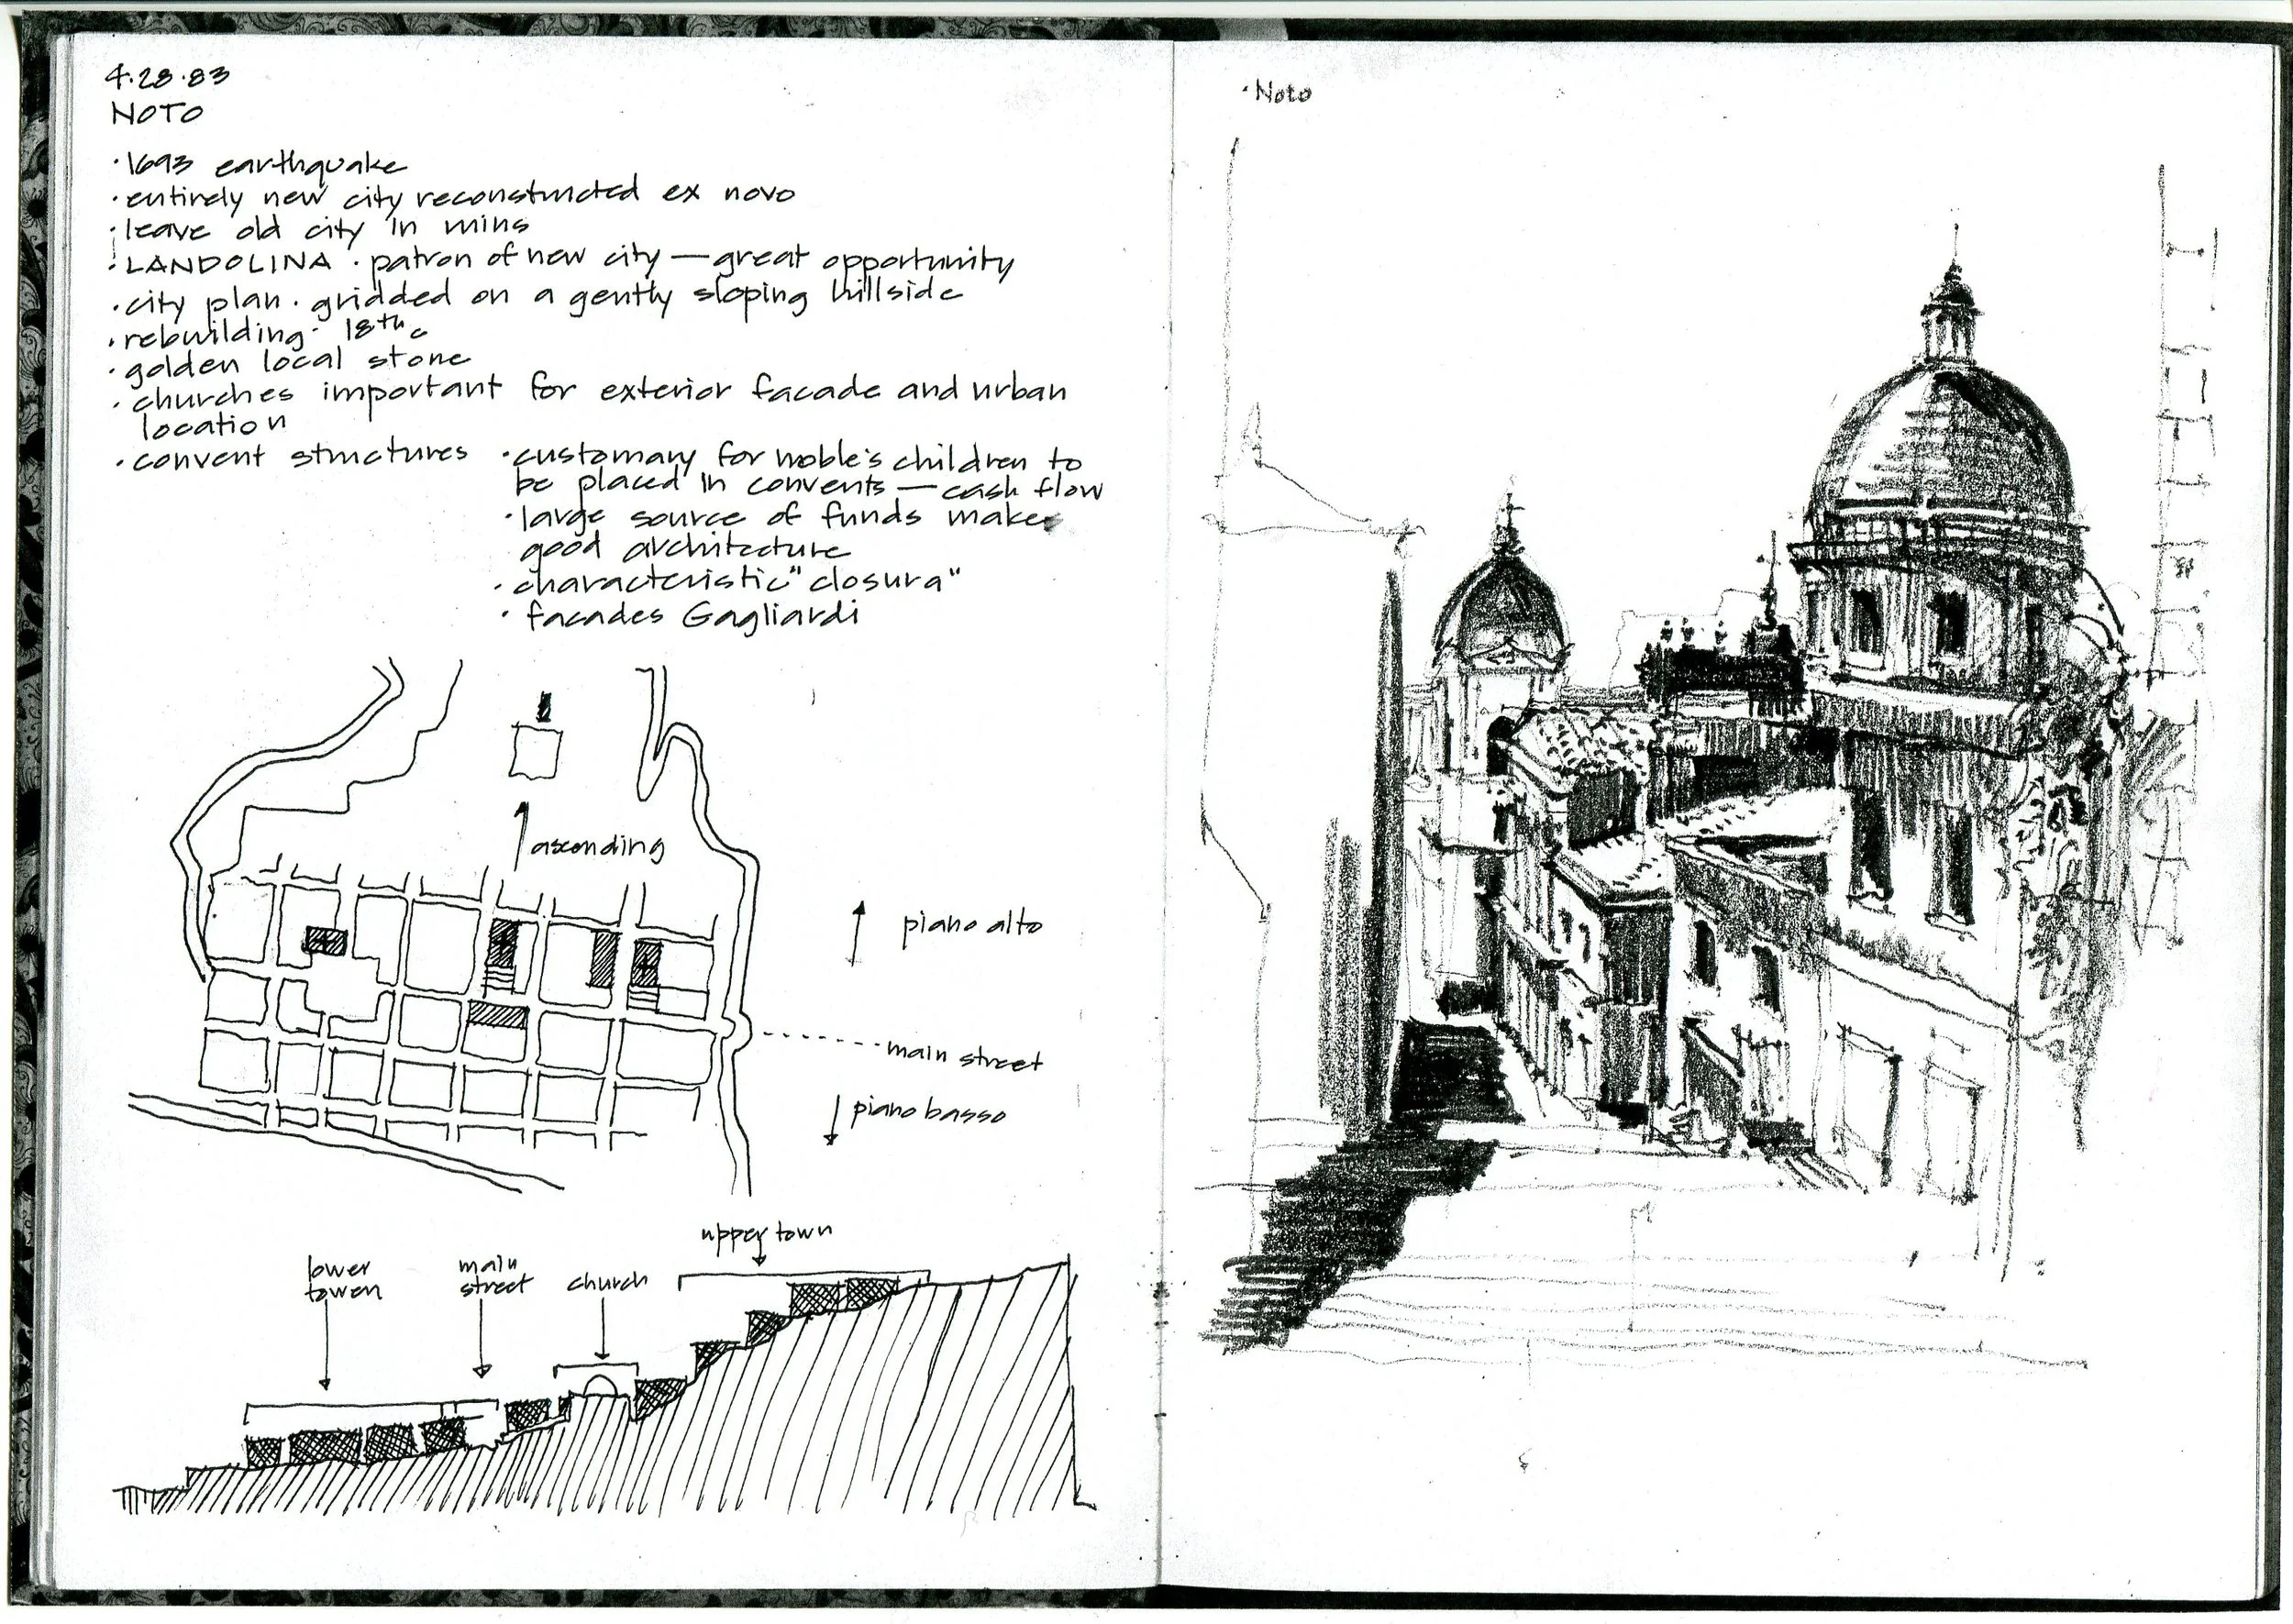 4.28.83
NOTO
· 1693 earthquake
· entirely new city reconstructed ex novo
· leave old city in ruins
· LANDOLINA · patron of new city — great opportunity
· city plan · gridded on a gently sloping hillside
· rebuilding · 18th c
· golden local stone
· churches important for exterior facade and urban
location
· convent structures
· customary for noble's children to
be placed in convents — cash flow
· large source of funds makes
good architecture
· characteristic "closura"
· facades Gagliardi
ascending
piano alto
main street
piano basso
upper town
lower
towen
main
street
church
· Noto